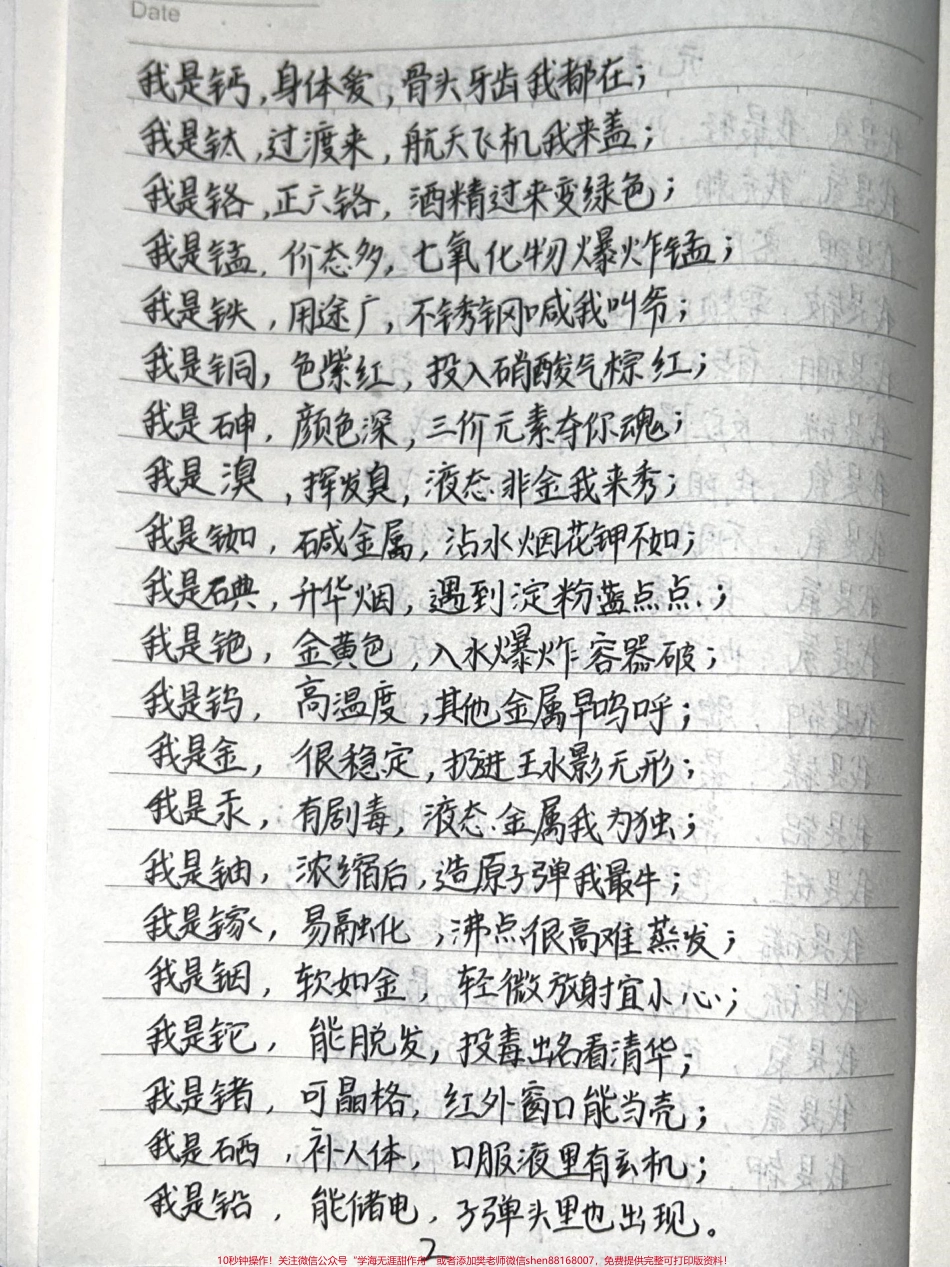 Date
我是钙,身体爱,骨头牙齿我都在;
我是钛,过渡来,航天飞机我来盖;
我是铬,正六铬,酒精过来变绿色;
我是锰,价态多,七氧化物爆炸锰;
我是铁,用途广,不锈钢喊我叫爷;
我是铜,色紫红,投入硝酸气棕红;
我是砷,颜色深,三价元素夺你魂;
我是溴,挥发臭,液态非金我来秀;
我是铷,碱金属,沾水烟花钾不如;
我是碘,升华烟,遇到淀粉蓝点点;
我是铯,金黄色,入水爆炸容器破;
我是钨,高温度,其他金属早呜呼;
我是金,很稳定,扔进王水影无形;
我是汞,有剧毒,液态金属我为独;
我是铀,浓缩后,造原子弹我最牛;
我是镓,易融化,沸点很高难蒸发;
我是铟,软如金,轻微放射宜小心;
我是铊,能脱发,投毒出名看清华;
我是锗,可晶格,红外窗口能当壳;
我是硒,补人体,口服液里有玄机;
我是铅,能储电,子弹头里也出现。
2
10秒钟操作!关注微信公众号“学海无涯甜作舟”或者添加樊老师微信shen88168007,免费提供完整可打印版资料!